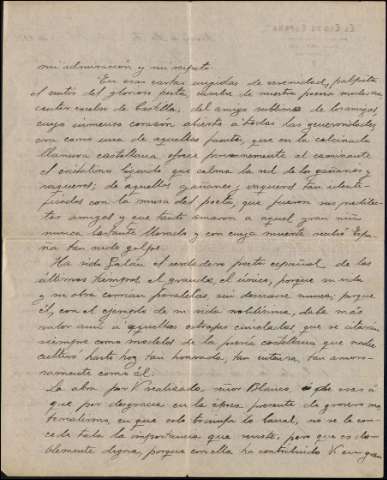 mi admiracion y mi respeto.
En esas cartas ungidas de serenidad, palpita
el estro del glorioso poeta, cumbre de nuestra poesia moderna,
cantor excelso de Castilla; del amigo sublime de los amigos,
cuyo inmenso corazón abierto a todas las generosidades,
era como una de aquellas fuentes, que en la calcinada
llanura castellana ofrece perennemente al caminante
el cristalino líquido que calma la sed de los gañanes y
vaqueros; de aquellos gañanes y vaqueros tan identi-
ficados con la musa del poeta, que fueron sus predilec-
tos amigos y que tanto amaron a aquel gran niño
nunca bastante llorado y con cuya muerte recibió Espa-
ña tan rudo golpe.
Ha sido Galán el verdadero poeta español de los
últimos tiempos, el grande, el único, porque su vida
y su obra corrian paralelas, sin desviarse nunca; porque
él, con el ejemplo de su vida nobilísima, daba más
valor aun a aquellas estrofas cinceladas que se citarán
siempre como modelos de la poesía castellana que nadie
cultivó hasta hoy tan honrada, tan entera, tan amoro-
samente como él.
La obra por V. realizada, señor Blanco, es de esas a
que por desgracia en la época presente de grosero ma-
terialismo, en que solo triunfa lo banal, no se le con-
cede toda la importancia que reviste; pero que es do-
blemente digna, porque con ella ha contribuido V. en gran